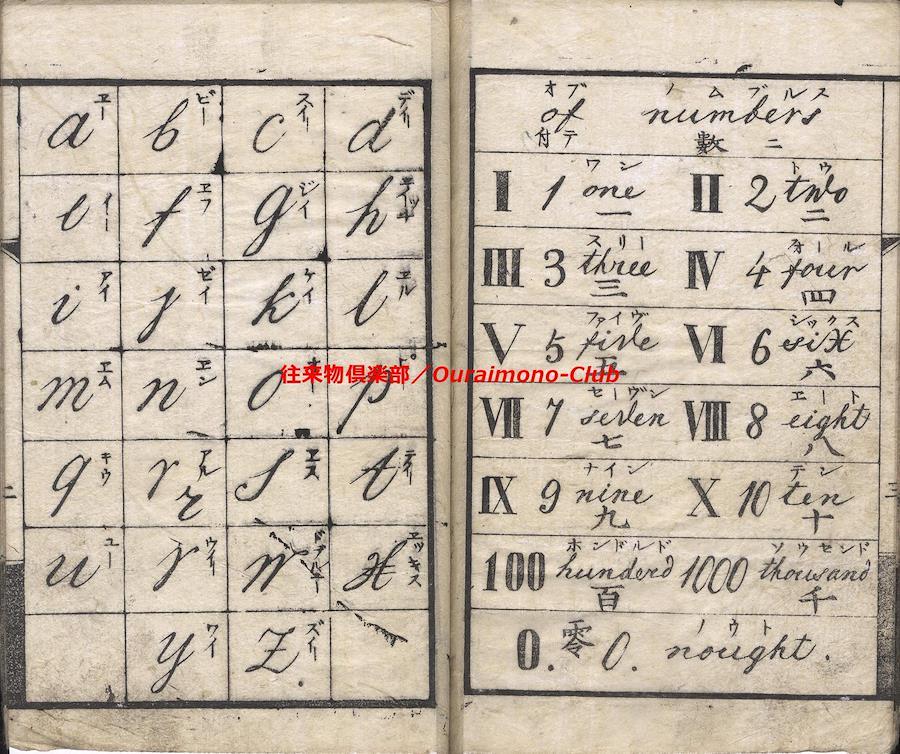 a エー b ビー c スイー d デイー
e イー f エフ g ジイ h エイッチ
i アイ j ゼイ k ケイ l エル
m エム n エン o オー p ピー
q キウ r r アル s エス t テイー
u ユー v ウイー w ドブルユー x エッキス
y ワイ z ズイー
オブ ノムブルス
of numbers
付テ 數ニ
ワン トウ
I 1 one II 2 two
一 二
スリー フォール
III 3 three IV 4 four
三 四
ファイヴ シックス
V 5 five VI 6 six
五 六
セーヴン エート
VII 7 seven VIII 8 eight
七 八
ナイン テン
IX 9 nine X 10 ten
九 十
ホンドルド ソウセンド
100 hunderd 1000 thousand
百 千
ノウト
0. 零 0. nought.
二 三
往来物倶楽部／Ouraimono-Club